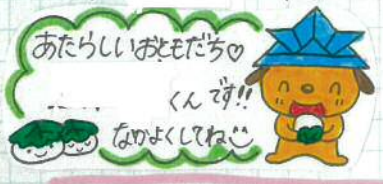 あたらしいおともだち♡
くんです!!
なかよくしてね